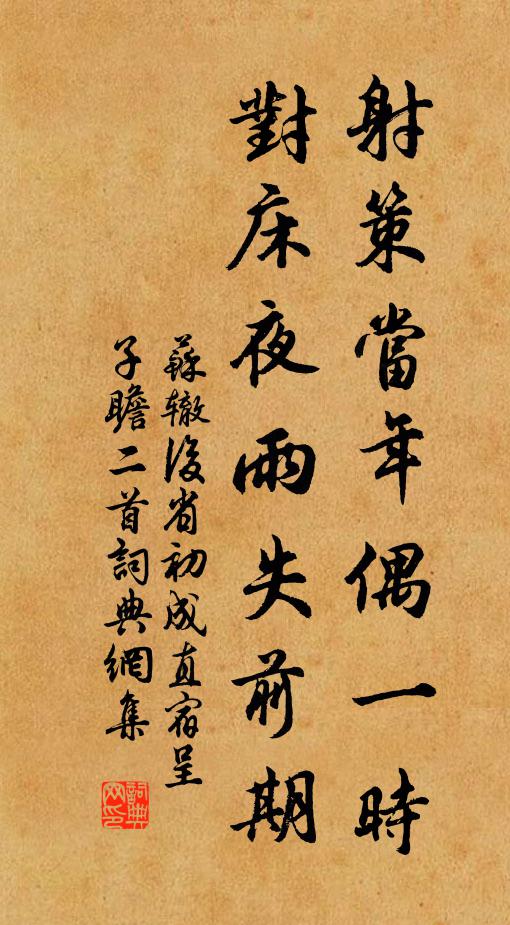 射策當年偶一時
對床夜雨失前期
蘇辙後省初成直宿呈
子瞻二首詞典網集
詞典网印